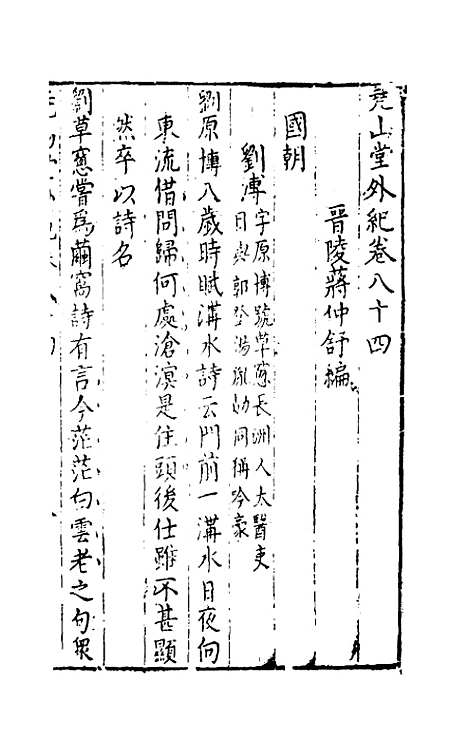 堯山堂外紀卷八十四
晋陵蔣仲舒編
國朝
劉溥字原博號草窓長洲人太醫吏
目與郭登湯胤勣同稱吟豪
劉原博八歲時賦溝水詩云門前一溝水日夜向
東流借問歸何處滄溟是住頭後仕雖不甚顯
然卒以詩名
劉草窓嘗爲繭窩詩有言今茫茫勾雲老之句衆